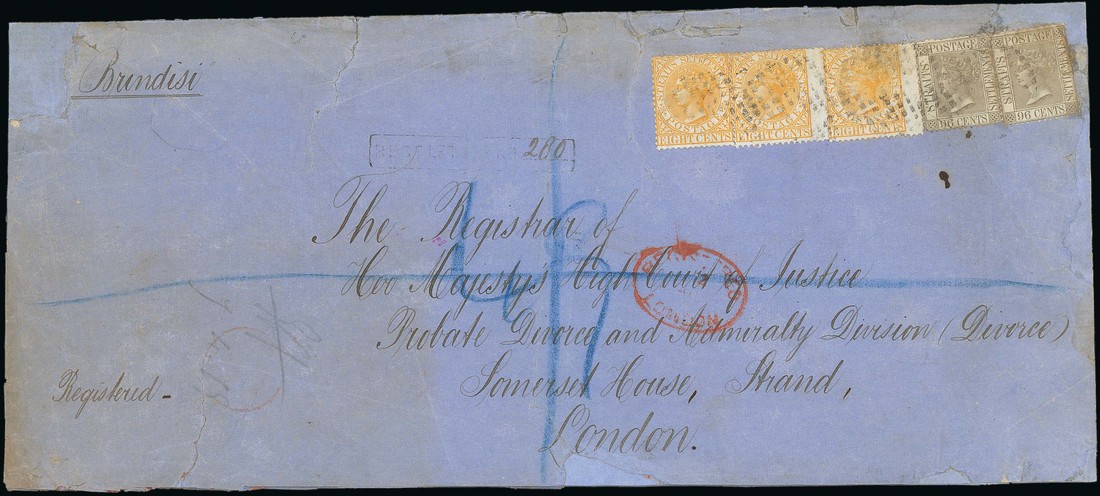 Brindisi
STRAITS SETTLEMENTS POSTAGE EIGHT CENTS
STRAITS SETTLEMENTS POSTAGE EIGHT CENTS
STRAITS SETTLEMENTS POSTAGE EIGHT CENTS
STRAITS POSTAGE SETTLEMENTS 96 CENTS
STRAITS POSTAGE SETTLEMENTS 96 CENTS
200
The Registrar of
Her Majesty's High Court of Justice
Probate Divorce and Admiralty Division (Divorce)
Somerset House, Strand,
London.
REGISTERED
LONDON
Registered -